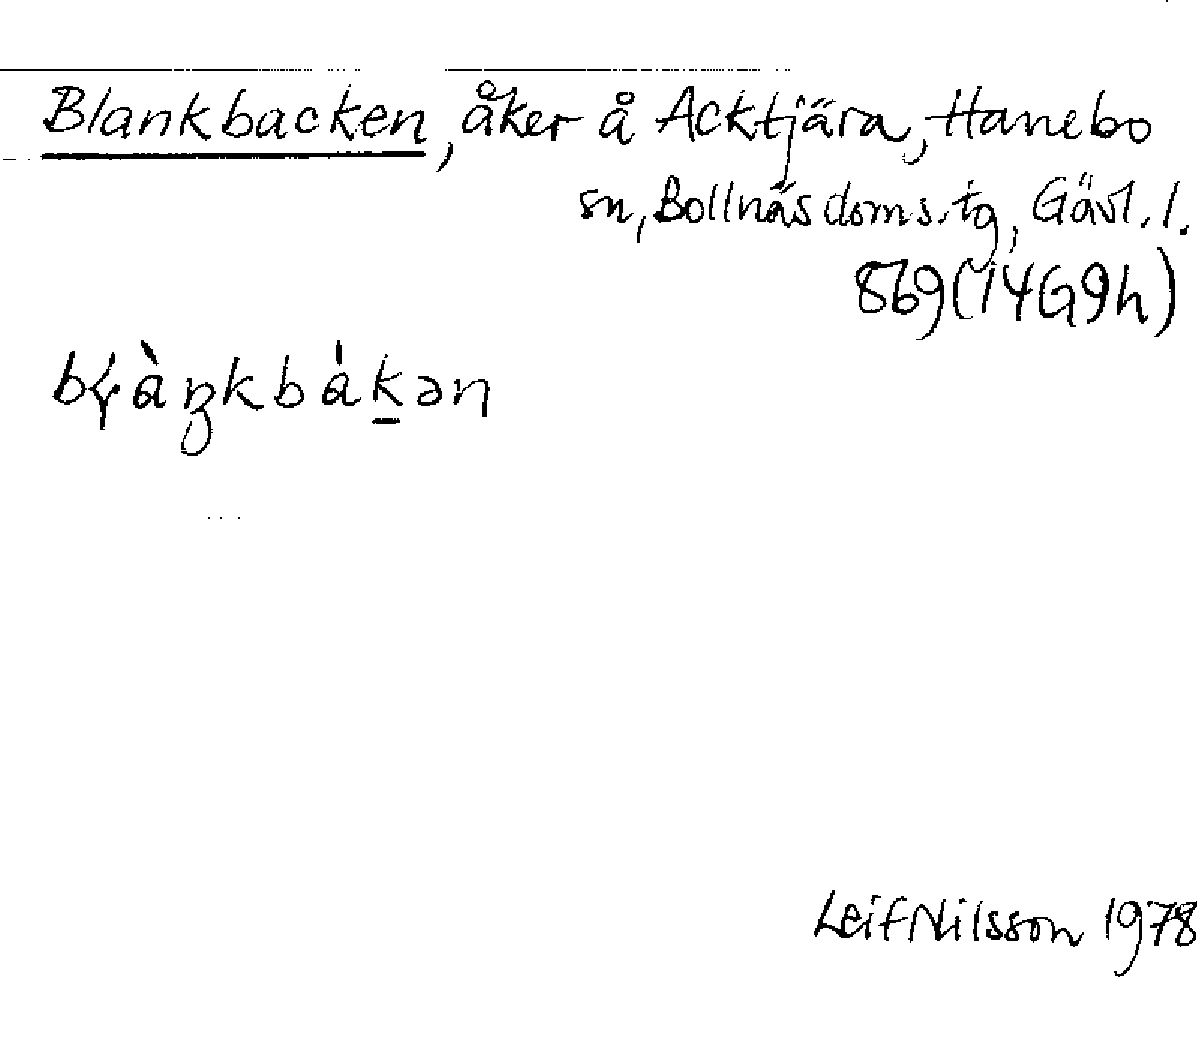 Blankbacken, åker å Acktjära, Hanebo
sn, Bollnäs doms.tg, Gävl. l.
869 (14G9h)
Leif Nilsson 1978